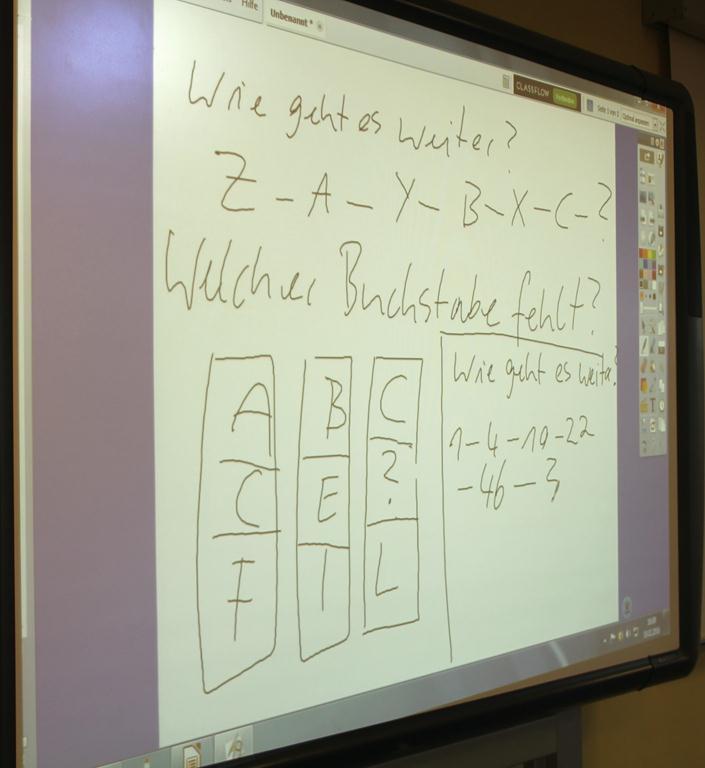 Hilfe
Unbenannt *
CLASSFLOW
Wie geht es weiter?
Z - A - Y - B - X - C - ?
Welcher Buchstabe fehlt?
A B C
C E ?
F I L
Wie geht es weiter?
1 - 4 - 10 - 22
- 46 - ?